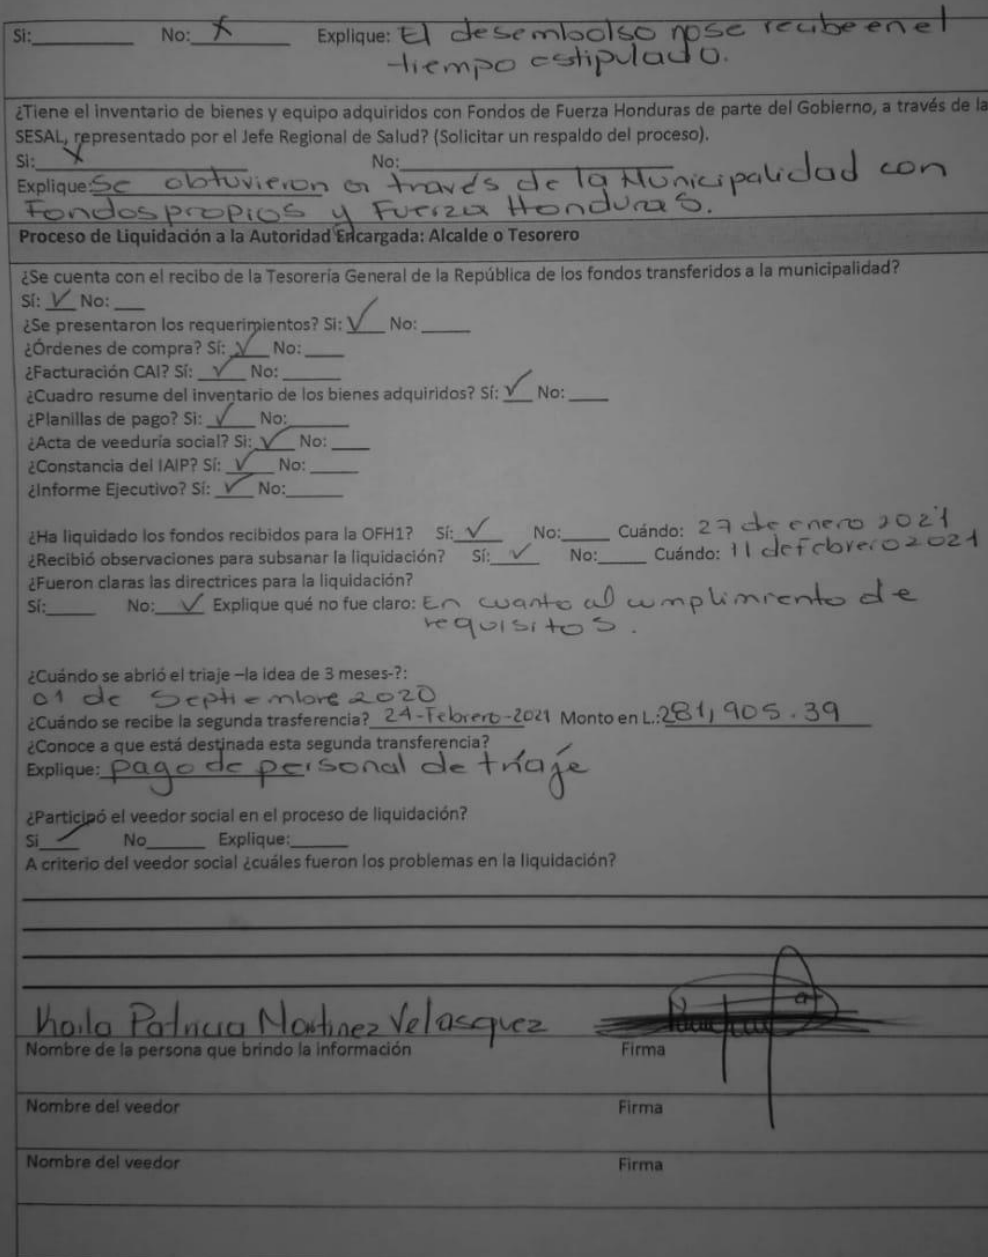 Si:__________ No:__X______ Explique: El desembolso no se recibe en el
tiempo estipulado.
¿Tiene el inventario de bienes y equipo adquiridos con Fondos de Fuerza Honduras de parte del Gobierno, a través de la
SESAL, representado por el Jefe Regional de Salud? (Solicitar un respaldo del proceso).
Si:__X__________ No:__________
Explique: Se obtuvieron a través de la Municipalidad con
Fondos propios y Fuerza Honduras.
Proceso de Liquidación a la Autoridad Encargada: Alcalde o Tesorero
¿Se cuenta con el recibo de la Tesorería General de la República de los fondos transferidos a la municipalidad?
Sí: _✓_ No: ___
¿Se presentaron los requerimientos? Si: _✓_ No: _____
¿Órdenes de compra? Sí: _✓_ No: ____
¿Facturación CAI? Sí: _✓_ No: ______
¿Cuadro resume del inventario de los bienes adquiridos? Sí: _✓_ No: ____
¿Planillas de pago? Si: _✓_ No: ______
¿Acta de veeduría social? Si: _✓_ No: ____
¿Constancia del IAIP? Sí: _✓_ No: _____
¿Informe Ejecutivo? Sí: _✓_ No:______
¿Ha liquidado los fondos recibidos para la OFH1? Sí:_✓_ No:_____ Cuándo: 27 de enero 2021
¿Recibió observaciones para subsanar la liquidación? Sí:_✓_ No:_____ Cuándo: 11 de febrero 2021
¿Fueron claras las directrices para la liquidación?
Sí:_____ No:_✓_ Explique qué no fue claro: En cuanto al cumplimiento de
requisitos.
¿Cuándo se abrió el triaje –la idea de 3 meses-?:
01 de Septiembre 2020
¿Cuándo se recibe la segunda trasferencia? 24-Febrero-2021 Monto en L.: 281,905.39
¿Conoce a que está destinada esta segunda transferencia?
Explique: pago de personal de triaje
¿Participó el veedor social en el proceso de liquidación?
Si_✓_ No______ Explique:______
A criterio del veedor social ¿cuáles fueron los problemas en la liquidación?
Patricia Martinez Velasquez
Nombre de la persona que brindo la información Firma
Nombre del veedor Firma
Nombre del veedor Firma